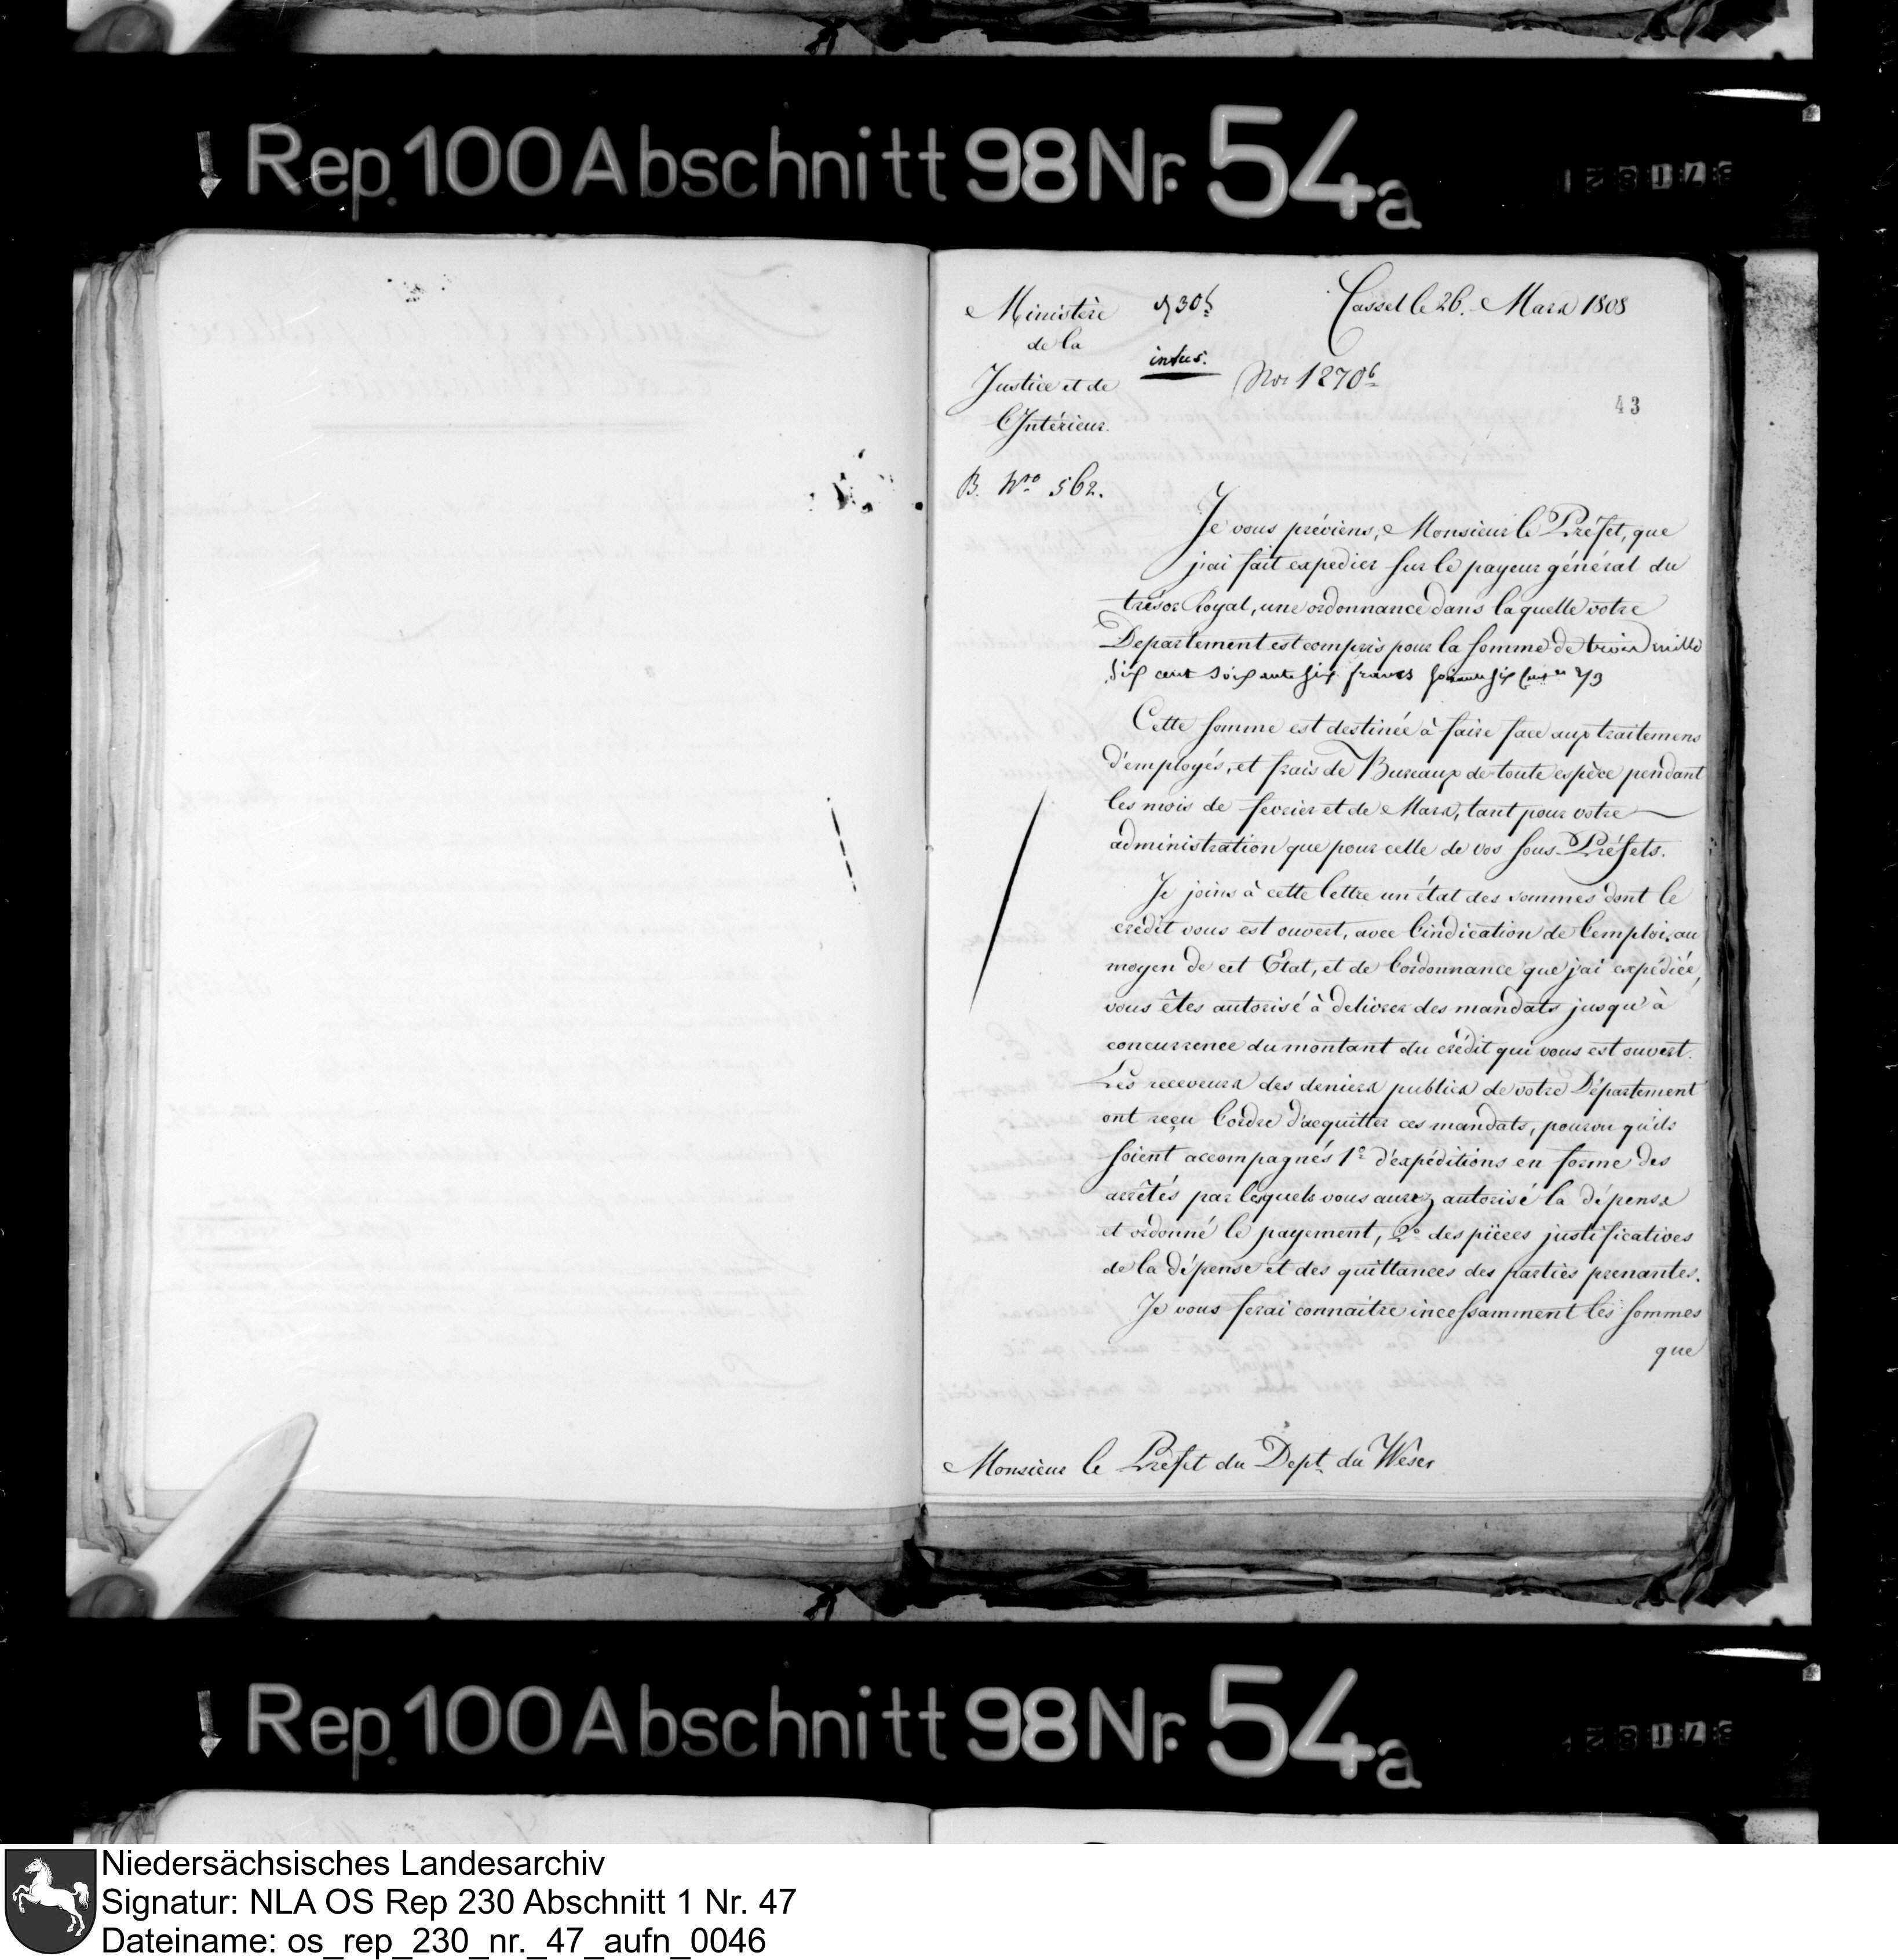 Rep. 100 Abschnitt 98 Nr. 54a
Ministère
de la
Justice et de
l'Intérieur.
intus.
Cassel le 26. Mars 1808
1270
43
B. Nro 562.
Je vous préviens, Monsieur le Préfet, que
j'ai fait expedier sur le payeur général du
trésor Royal, une ordonnance dans laquelle votre
Departement est compris pour la somme de trois mille
Six cent Soixante six francs soixante six 2/3
Cette somme est destinée à faire face aux traitemens
d'employés, et frais de Bureaux de toute espèce pendant
les mois de fevrier et de Mars, tant pour votre
administration que pour celle de vos sous-Préfets.
Je joins à cette lettre un état des sommes dont le
crédit vous est ouvert, avec l'indication de l'emploi, au
moyen de cet Etat, et de l'ordonnance que j'ai expédiée,
vous êtes autorisé à delivrer des mandats jusqu'à
concurrence du montant du crédit qui vous est ouvert.
Les receveurs des deniers publics de votre Département
ont reçu l'ordre d'acquitter ces mandats, pourvu qu'ils
soient accompagnés 1º d'expéditions en forme des
arrêtés par lesquels vous aurez autorisé la dépense
et ordonné le payement, 2º des pièces justificatives
de la dépense et des quittances des parties prenantes.
Je vous ferai connaitre incessamment les sommes
que
Monsieur le Préfet du Dept. du Weser
Rep. 100 Abschnitt 98 Nr. 54a
Niedersächsisches Landesarchiv
Signatur: NLA OS Rep 230 Abschnitt 1 Nr. 47
Dateiname: os_rep_230_nr._47_aufn_0046